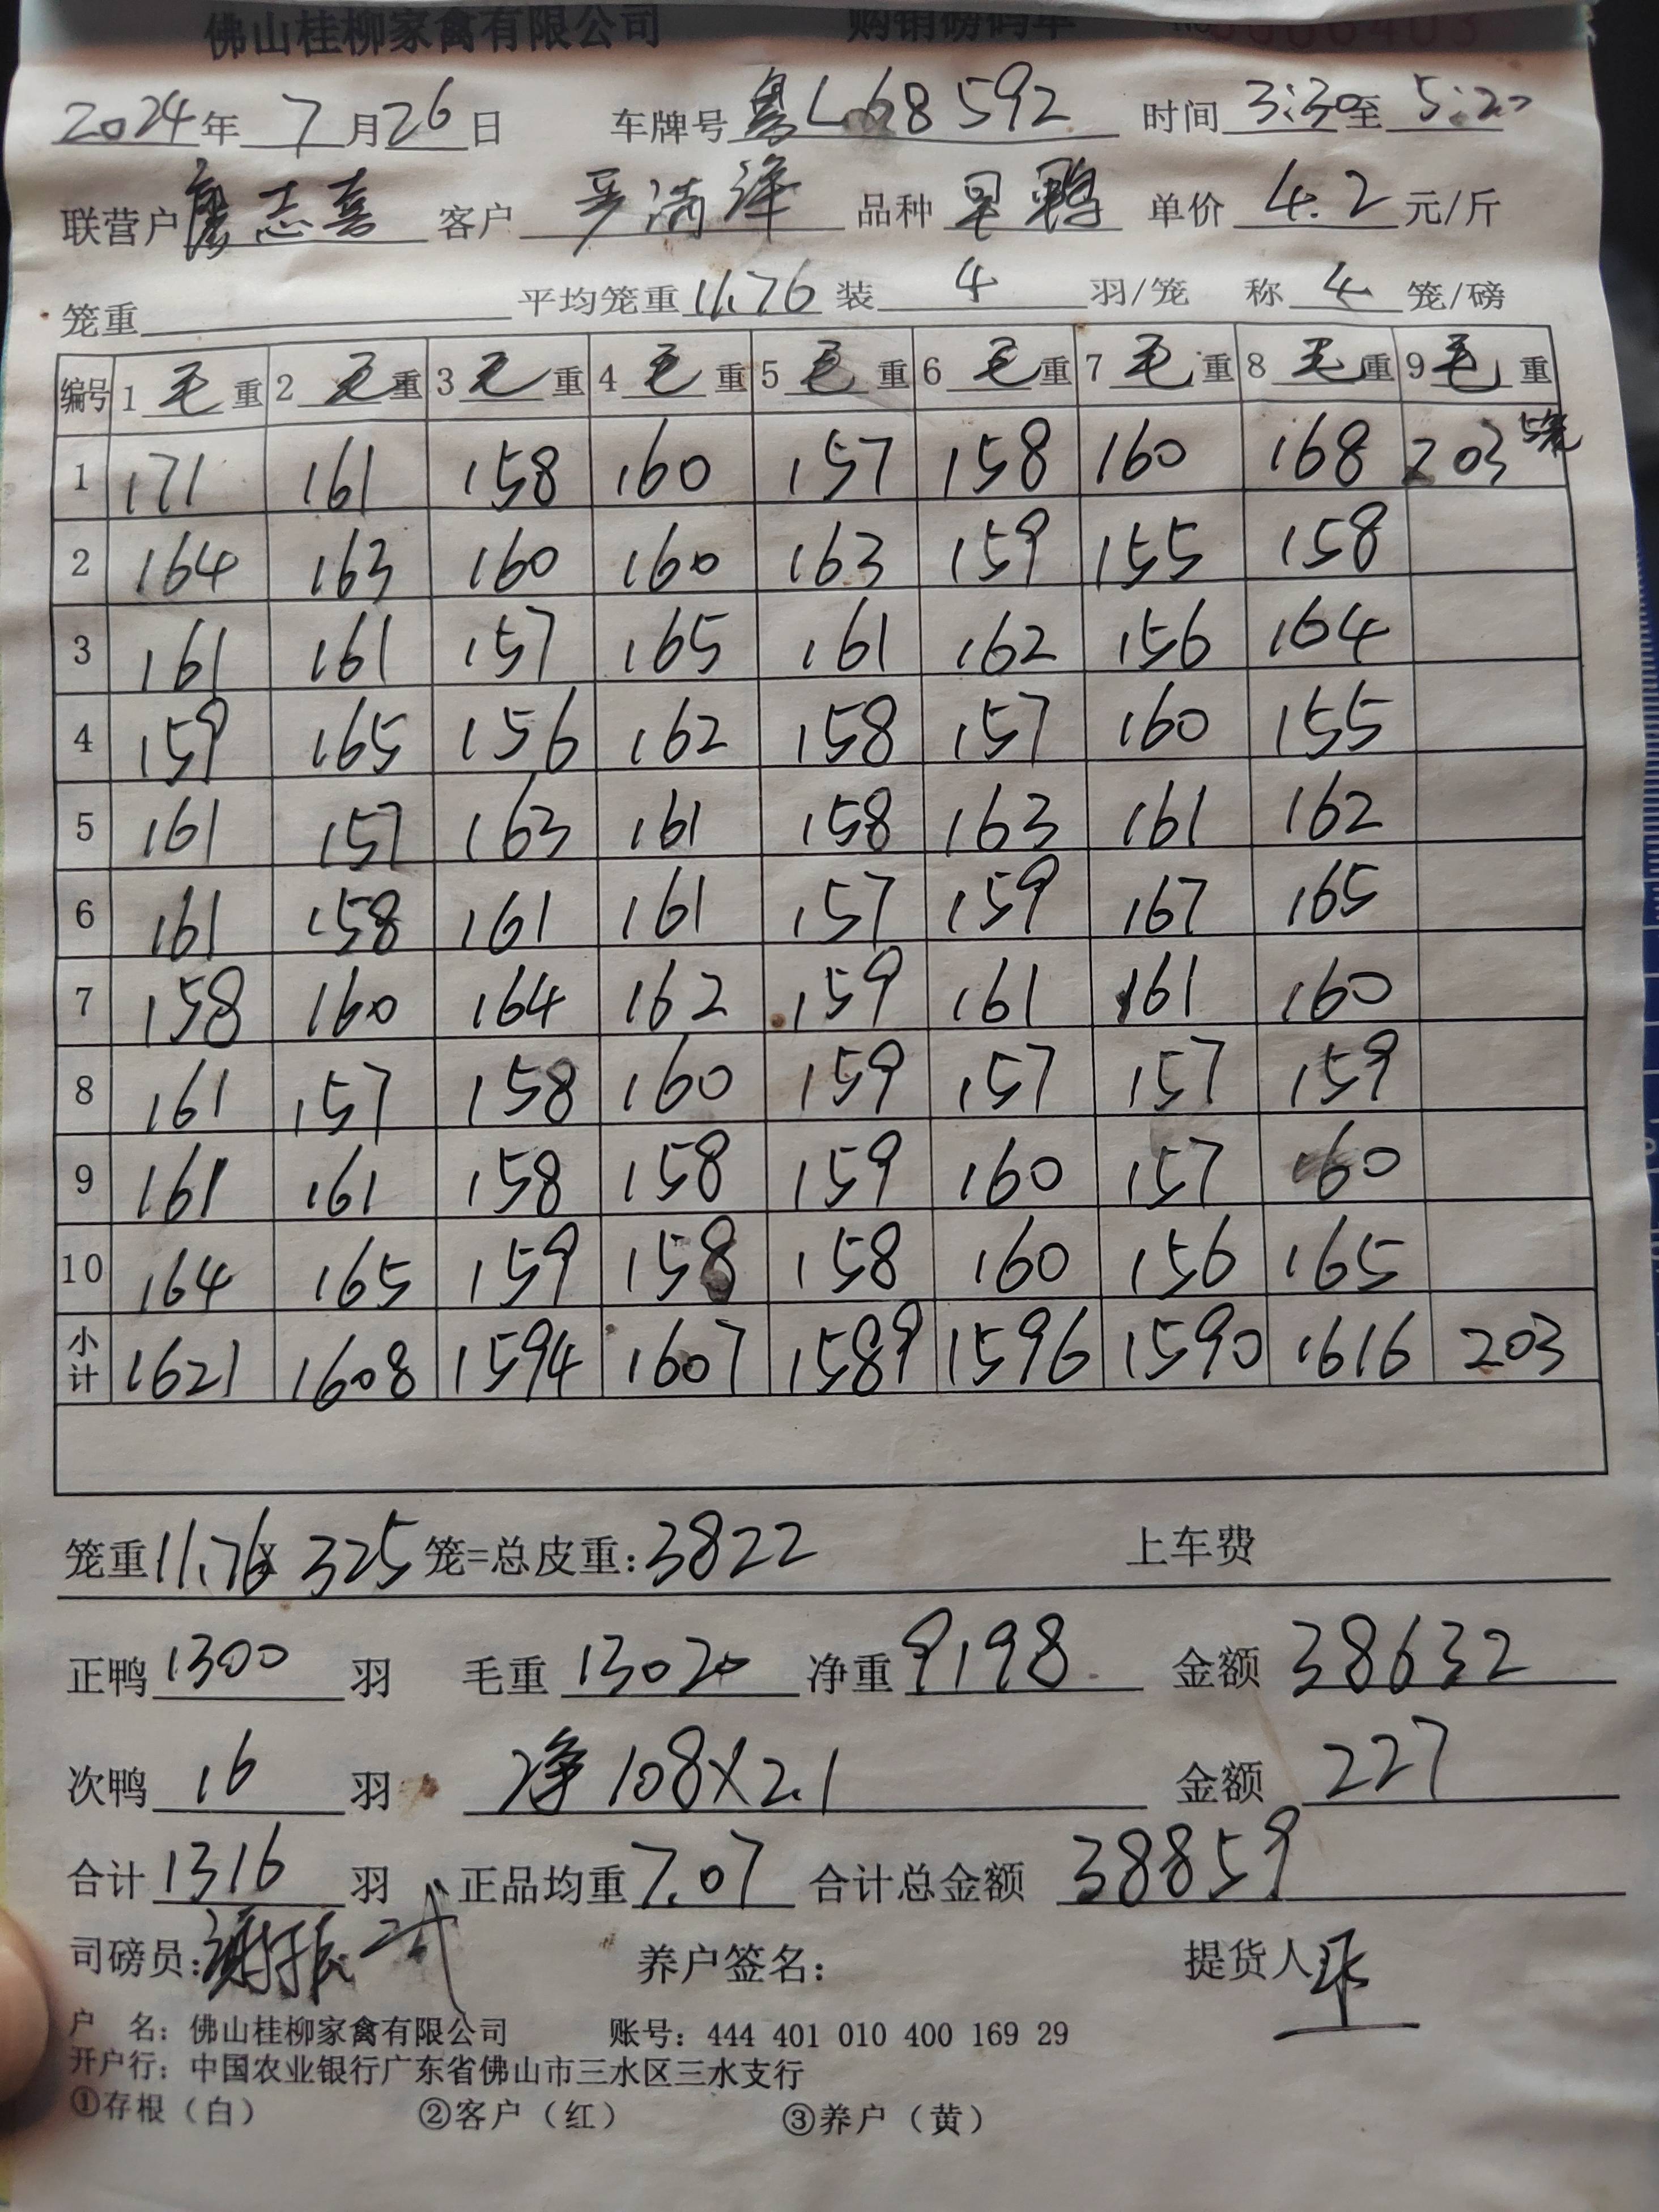 佛山桂柳家禽有限公司 购销磅码单
2024年 7月26日 车牌号 粤L68592 时间 3:30至 5:20
联营户 廖志喜 客户 严满泽 品种 单价 4.2 元/斤
笼重 平均笼重 11.76 装 4 羽/笼 称 4 笼/磅
编号 1毛重 2毛重 3毛重 4毛重 5毛重 6毛重 7毛重 8毛重 9毛重
1 171 161 158 160 157 158 160 168 203 5笼
2 164 163 160 160 163 159 155 158
3 161 161 157 165 161 162 156 164
4 159 165 156 162 158 157 160 155
5 161 157 163 161 158 163 161 162
6 161 158 161 161 157 159 167 165
7 158 160 164 162 159 161 161 160
8 161 157 158 160 159 157 157 159
9 161 161 158 158 159 160 157 160
10 164 165 159 158 158 160 156 165
小计 1621 1608 1594 1607 1589 1596 1590 1616 203
笼重11.76x 325笼=总皮重:3822 上车费
正鸭 1300 羽 毛重 13020 净重 9198 金额 38632
次鸭 16 羽 净 108X2.1 金额 227
合计 1316 羽 正品均重 7.07 合计总金额 38859
司磅员: 养户签名: 提货人
户 名: 佛山桂柳家禽有限公司 账号: 444 401 010 400 169 29
开户行: 中国农业银行广东省佛山市三水区三水支行
①存根（白） ②客户（红） ③养户（黄）